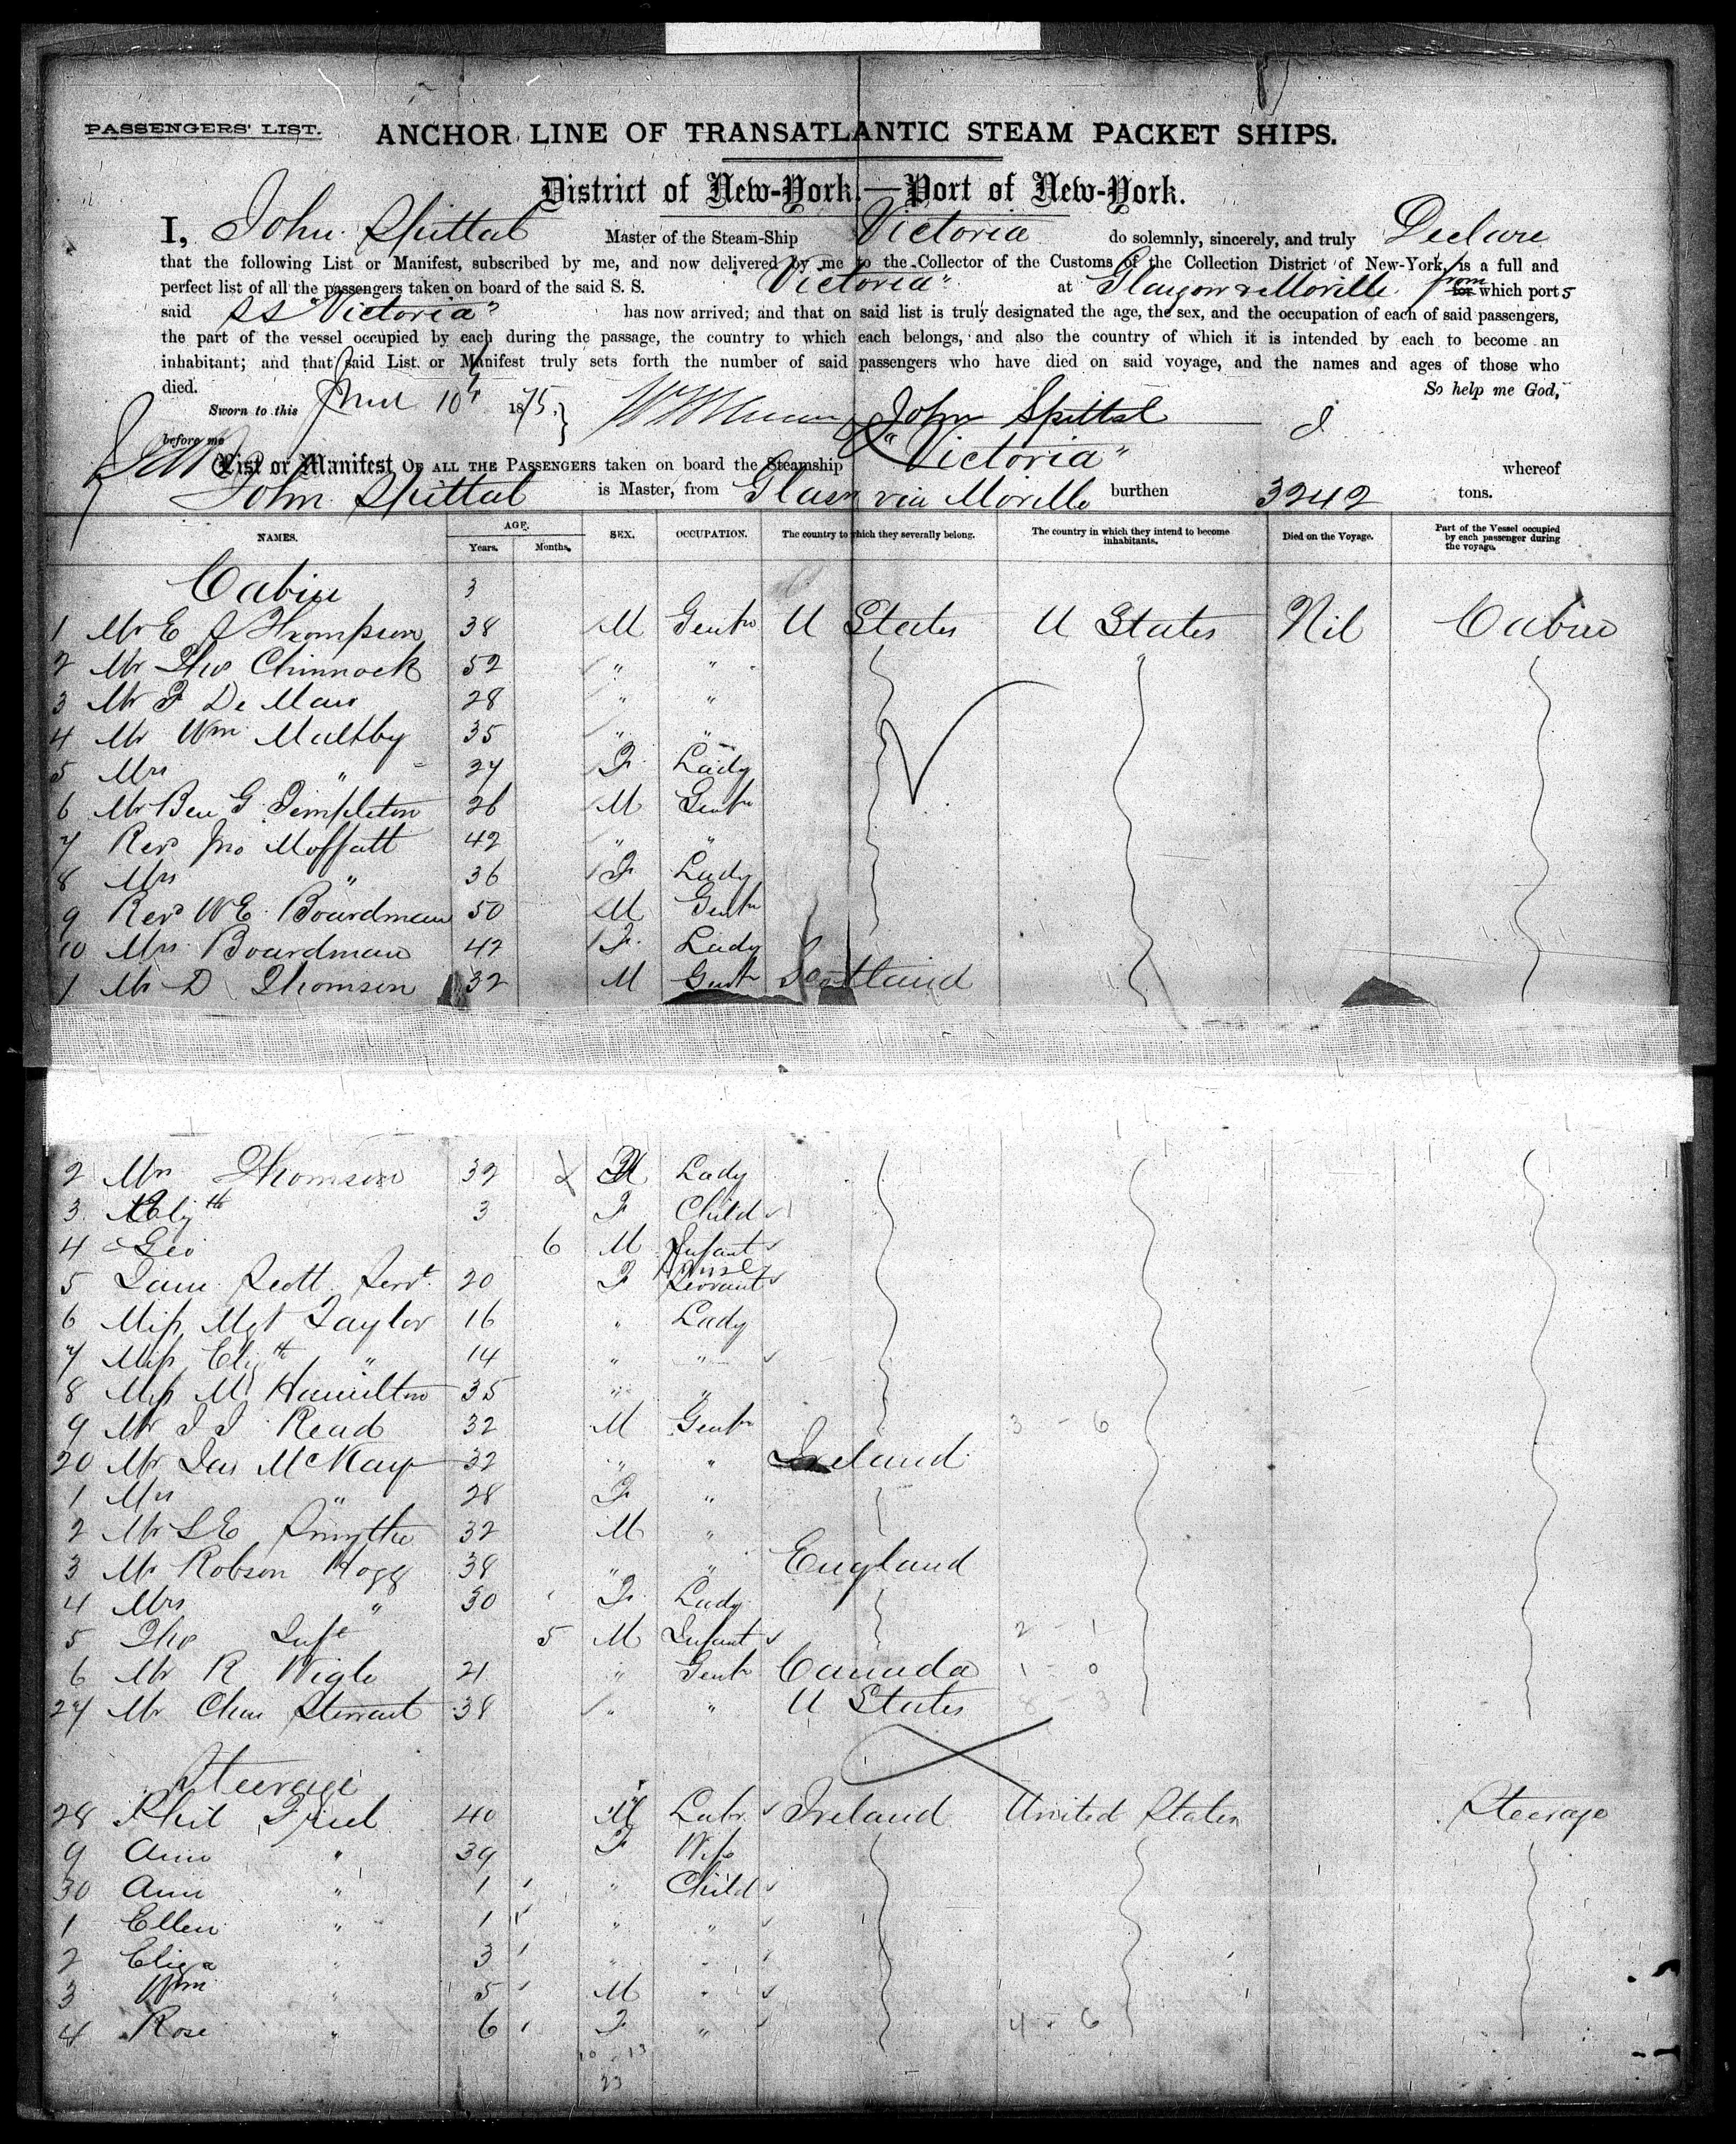 PASSENGERS' LIST.
ANCHOR LINE OF TRANSATLANTIC STEAM PACKET SHIPS.
District of New-York.—Port of New-York.
I, John Spittal Master of the Steam-Ship Victoria do solemnly, sincerely, and truly Declare
that the following List or Manifest, subscribed by me, and now delivered by me to the Collector of the Customs of the Collection District of New-York, is a full and
perfect list of all the passengers taken on board of the said S. S. "Victoria" at Glasgow & Moville from for which port s
said SS "Victoria" has now arrived; and that on said list is truly designated the age, the sex, and the occupation of each of said passengers,
the part of the vessel occupied by each during the passage, the country to which each belongs, and also the country of which it is intended by each to become an
inhabitant; and that said List or Manifest truly sets forth the number of said passengers who have died on said voyage, and the names and ages of those who
died. So help me God,
Sworn to this June 10th 1875. } John Spittal
before me
List or Manifest OF ALL THE PASSENGERS taken on board the Steamship "Victoria" whereof
John Spittal is Master, from Glasgw via Moville burthen 3242 tons.
NAMES. AGE. Years. Months. SEX. OCCUPATION. The country to which they severally belong. The country in which they intend to become inhabitants. Died on the Voyage. Part of the Vessel occupied by each passenger during the voyage.
Cabin 3
1 Mr E J Thompson 38 M Gentn U States U States Nil Cabin
2 Mr Thos Chinnock 52 " "
3 Mr F De Mars 28 " "
4 Mr Wm Maltby 35 " "
5 Mrs " 27 F Lady
6 Mr Ben G Templeton 26 M Gentn
7 Revd Jno Moffatt 42 " "
8 Mrs " 36 F Lady
9 Revd W E Boardman 50 M Gentn
10 Mrs Boardman 42 F Lady
1 Mr D Thomson 32 M Gentn Scotland
2 Mrs Thomson 32 F Lady
3 Elizth 3 F Child
4 Geo 6 M Infant
5 Jane Scott Servt 20 F Nurse Servant
6 Miss Mgt Taylor 16 " Lady
7 Miss Elizth " 14 " "
8 Miss M Hamilton 35 " "
9 Mr J J Read 32 M Gentn 3 - 6
20 Mr Jas McKay 32 " " Ireland
1 Mrs " 28 F "
2 Mr S E Smythe 32 M "
3 Mr Robson Hogg 38 " " England
4 Mrs " 30 F Lady
5 Thos Inft 5 M Infant 2 - 1
6 Mr R Wigle 21 " Gentn Canada 1 - 0
27 Mr Chas Stewart 38 " " U States 8 - 3
Steerage
28 Phil Friel 40 M Labr Ireland United States Steerage
9 Ann " 39 F Wife
30 Ann " 1 " Child
1 Ellen " 1 " "
2 Eliza " 3 " "
3 Wm " 5 M "
4 Rose " 6 F " 4 - 6
10 - 13
23